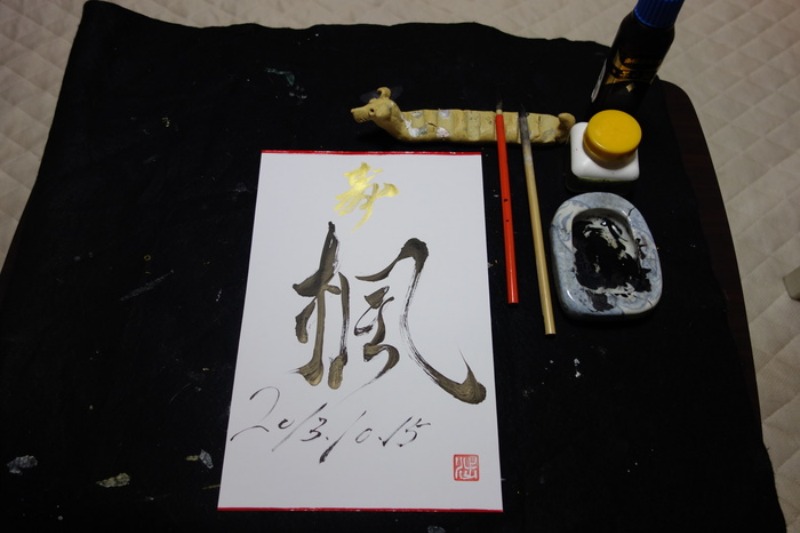 寿
楓
2013.10.15